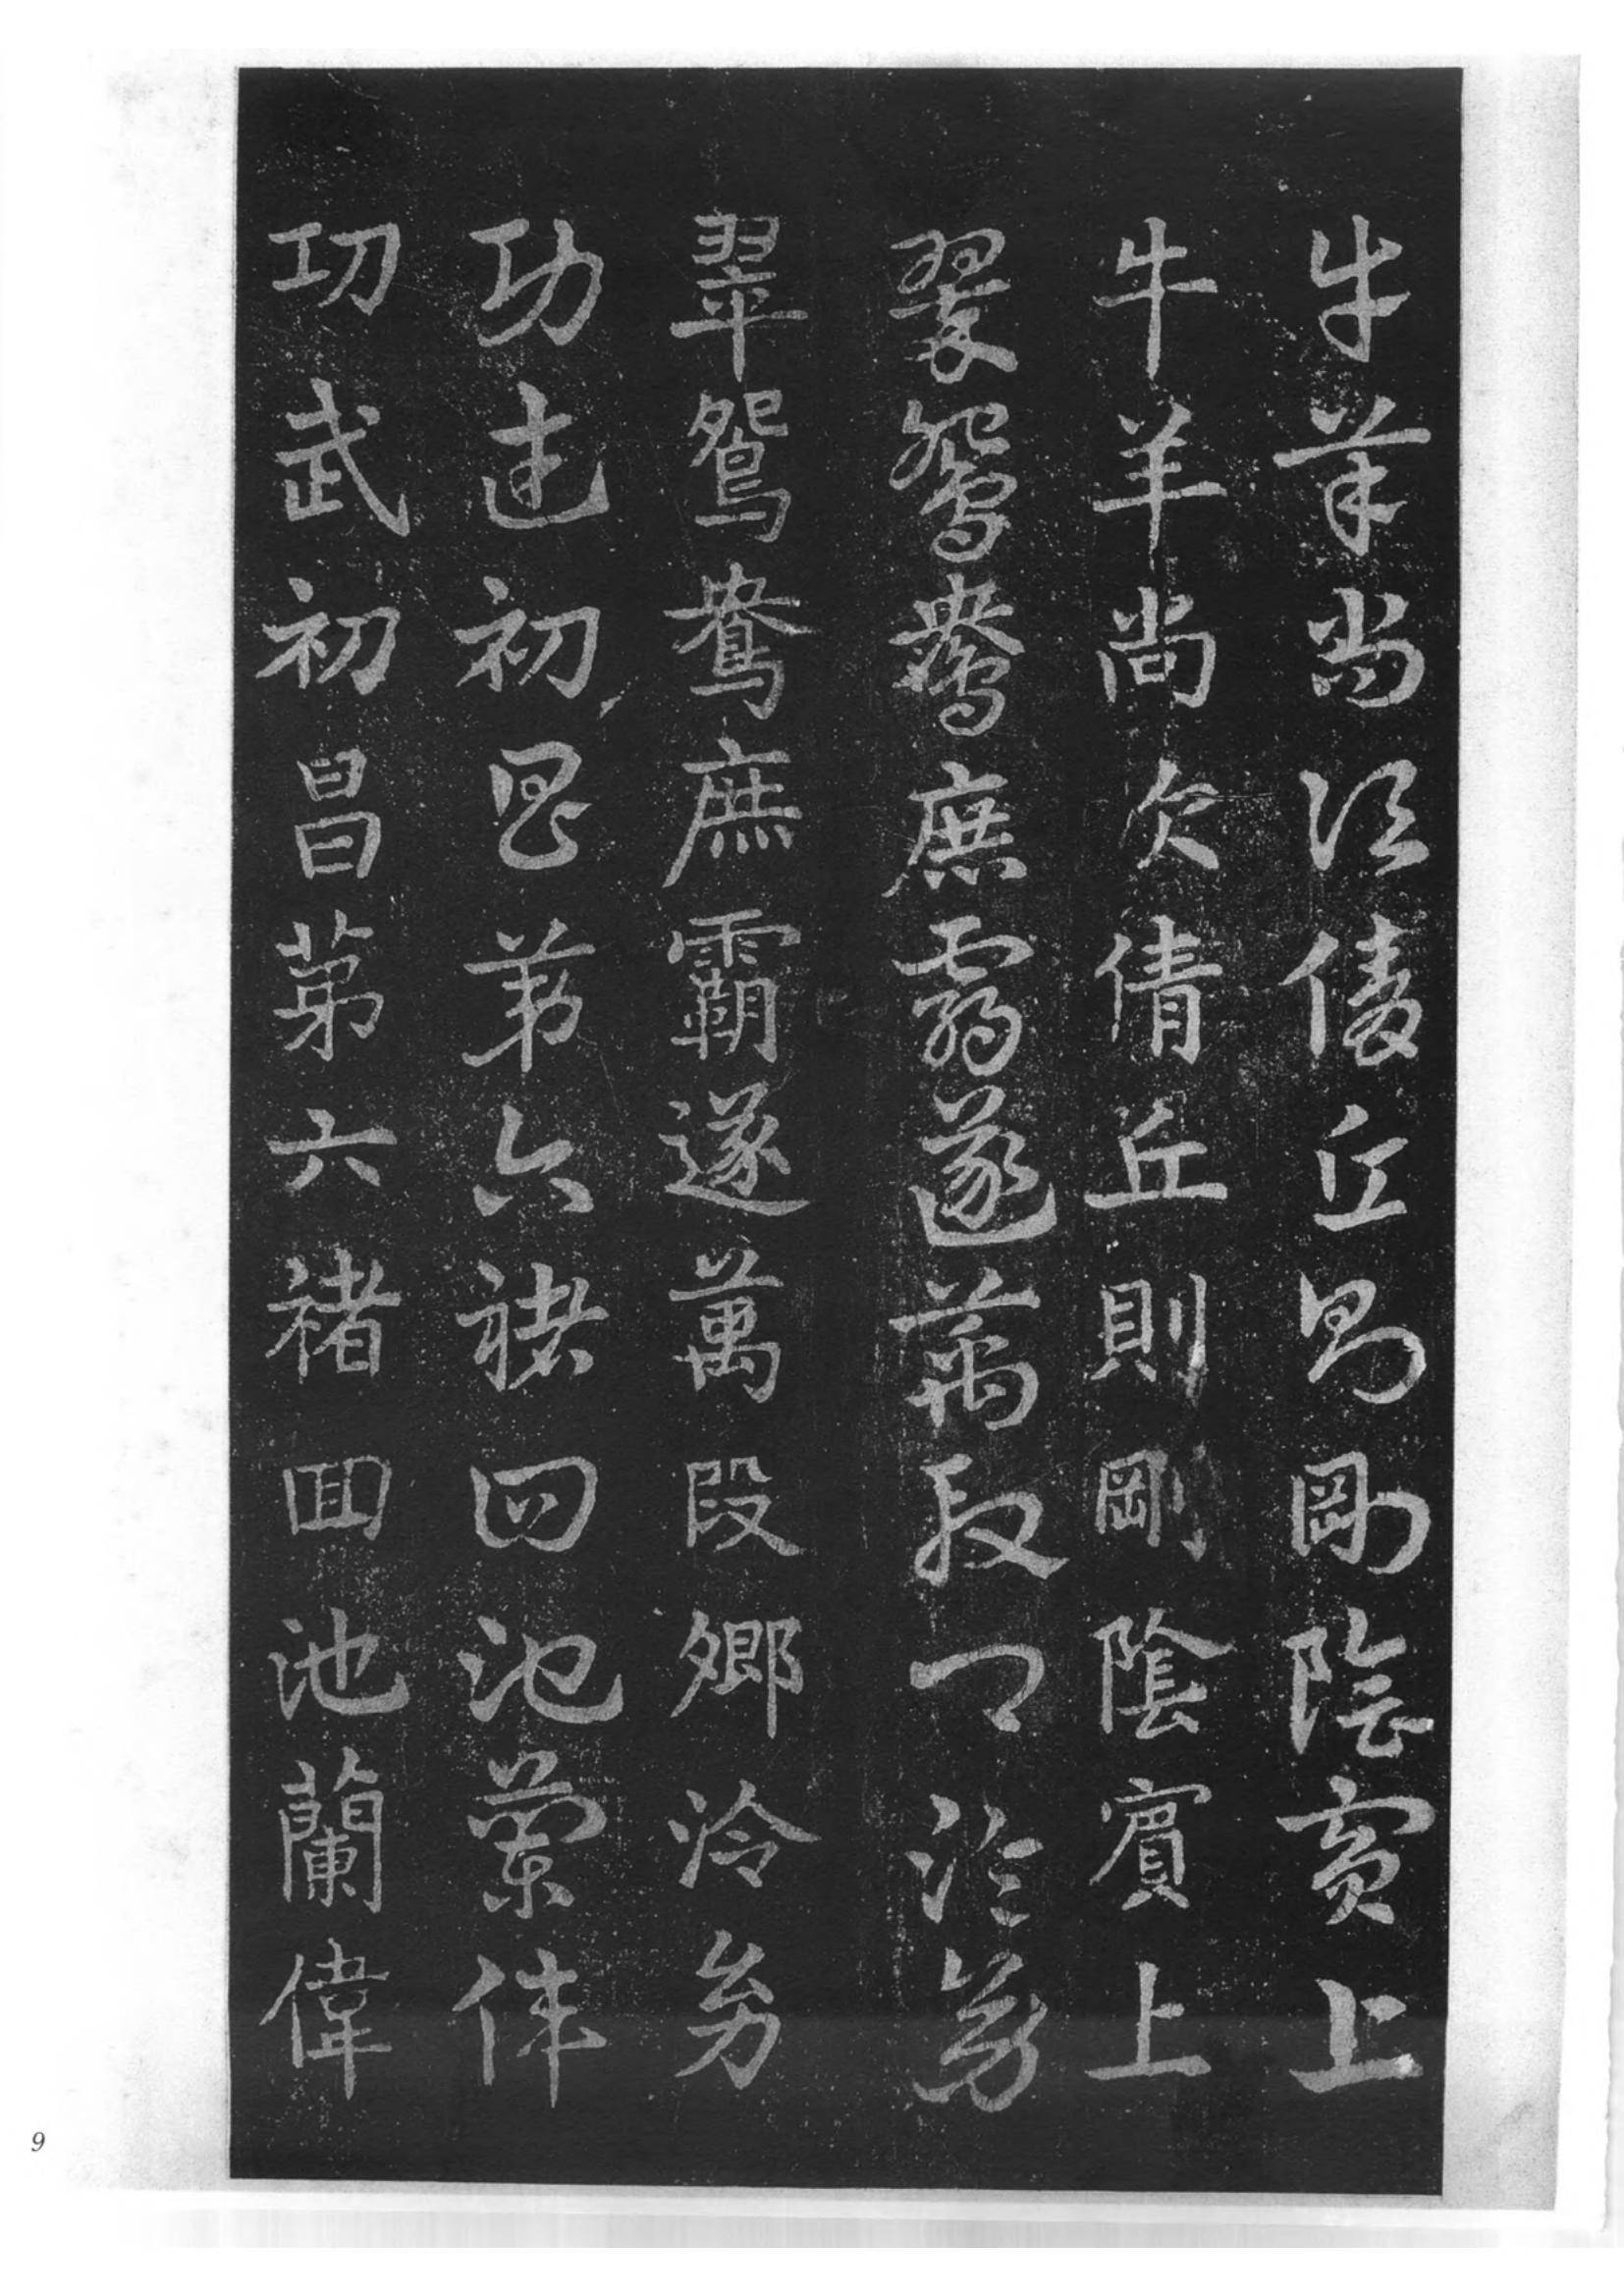 牛羊尚次倩丘則剛陰賓上
牛羊尚次倩丘則剛陰賓上
翠鴛鴦庶霸遂萬段卿泠幼
翠鴛鴦庶霸遂萬段卿泠幼
功武初昌第六褚回池蘭偉
功武初昌第六褚回池蘭偉
9